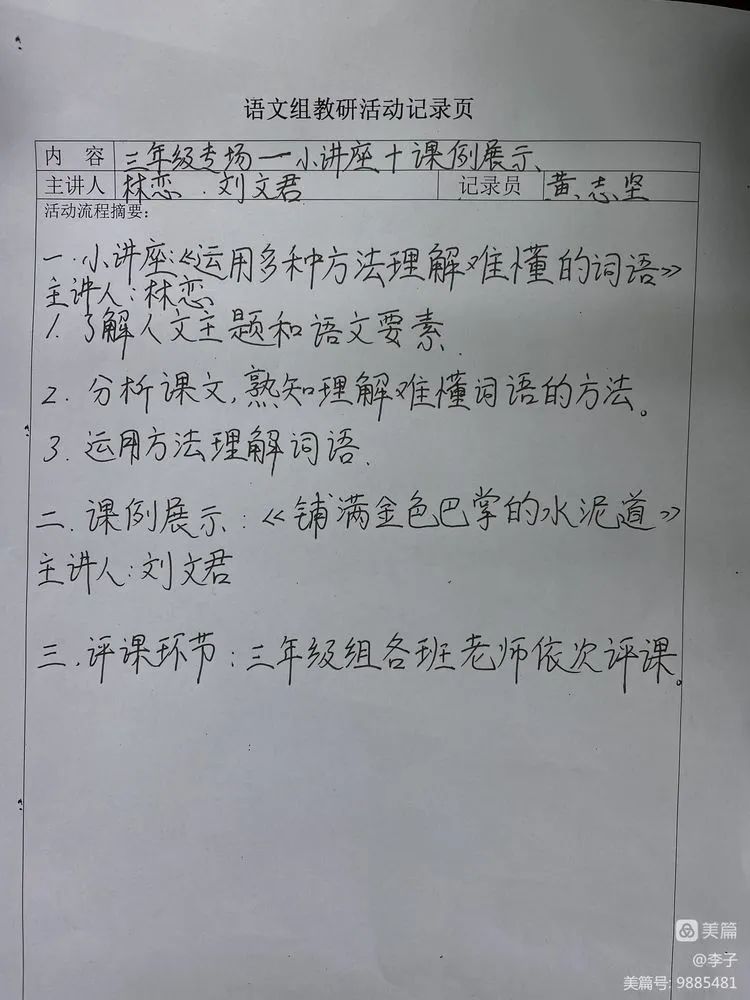 语文组教研活动记录页
内 容 三年级专场—小讲座+课例展示、
主讲人 林恋、刘文君 记录员 黄志坚
活动流程摘要:
一.小讲座:《运用多种方法理解难懂的词语》
主讲人:林恋
1.了解人文主题和语文要素.
2.分析课文,熟知理解难懂词语的方法。
3.运用方法理解词语.
二.课例展示:《铺满金色巴掌的水泥道》
主讲人:刘文君
三.评课环节:三年级组各班老师依次评课。
美篇
@李子
美篇号: 9885481